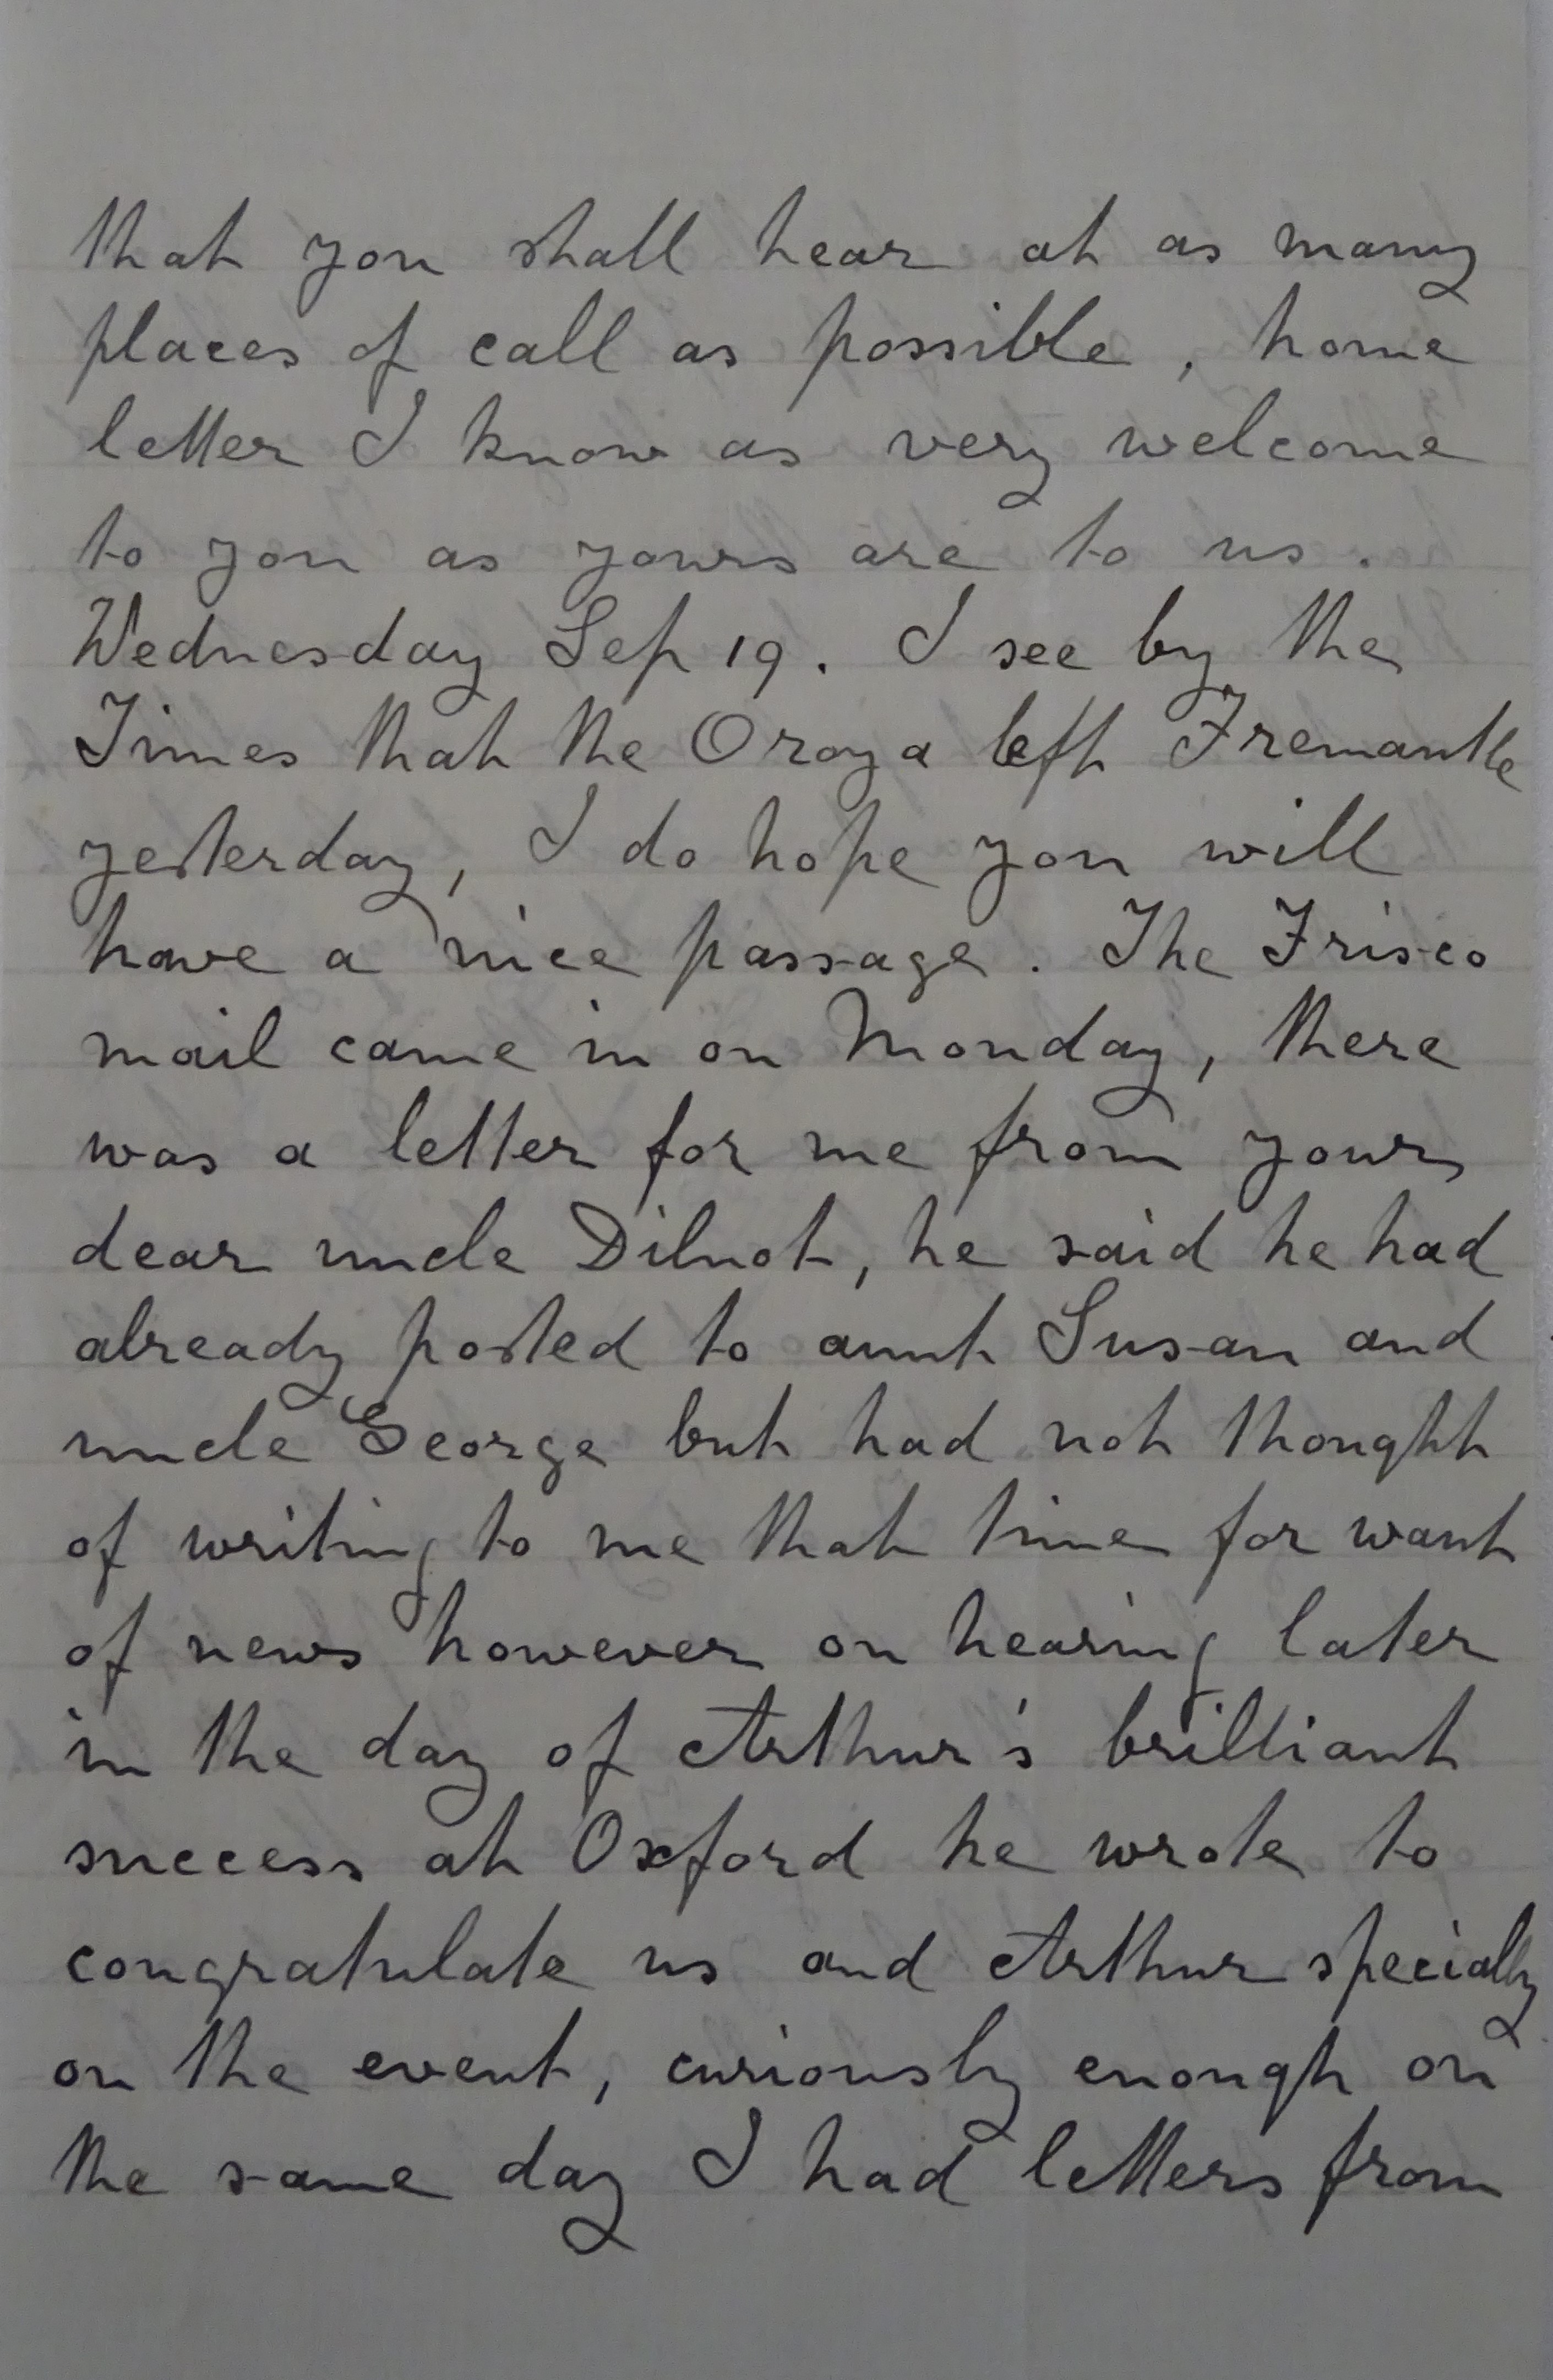 that you shall hear at as many
places of call as possible, home
letter I know as very welcome
to you as yours are to us.
Wednesday Sep 19. I see by the
Times that the Oroya left Fremantle
yesterday, I do hope you will
have a nice passage. The Frisco
mail came in on Monday, there
was a letter for me from your
dear uncle Dilnot, he said he had
already posted to aunt Susan and
uncle George but had not thought
of writing to me that time for want
of news however on hearing later
in the day of Arthur's brilliant
success at Oxford he wrote to
congratulate us and Arthur specially
on the event, curiously enough on
the same day I had letters from